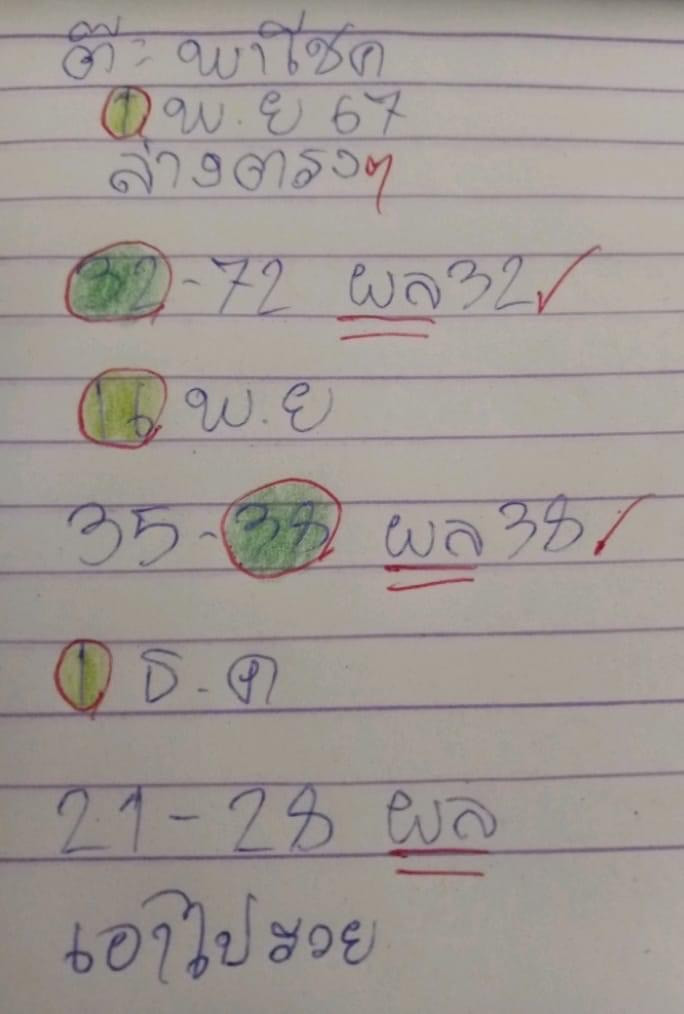 ต๊ะ พาโชค
1 พ.ย 67
ล่างตรงๆ
32-72 ผล32✓
16 พ.ย
35-38 ผล38✓
1 ธ.ค
21-28 ผล
เอาไปรวย